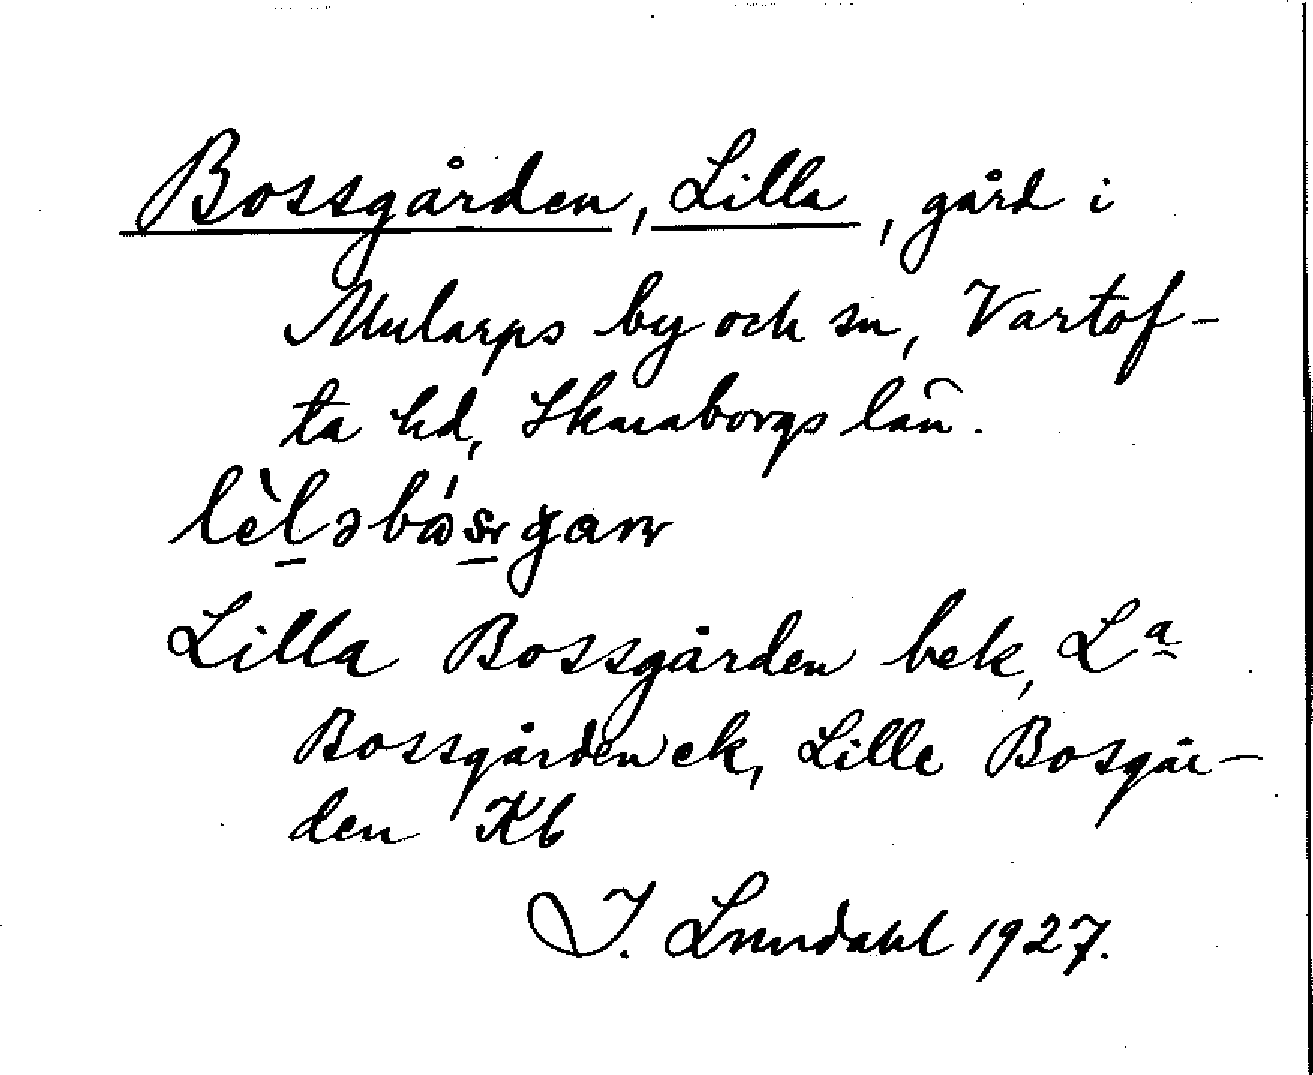 Bossgården, Lilla, gård i
Mularps by och sn, Vartof-
ta hd, Skaraborgs län.
Lilla Bossgården bek, Lᵃ
Bossgården ek, Lille Bosgår-
den Kb
I. Lundahl 1927.